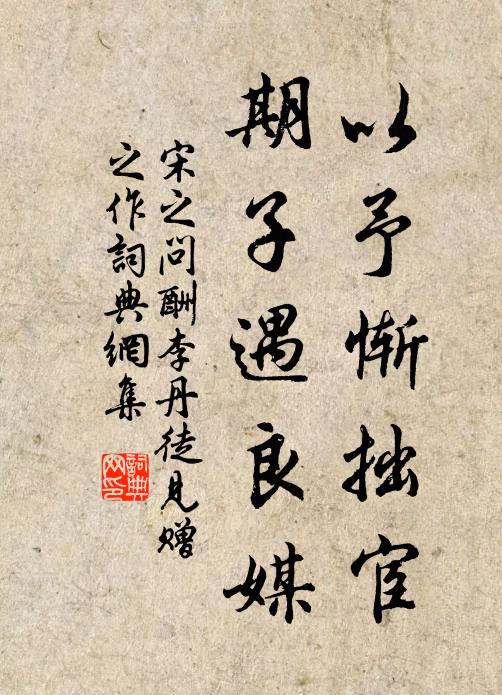 以予惭拙宦
期子遇良媒
宋之问酬李丹徒见赠
之作詞典網集
詞典
网印